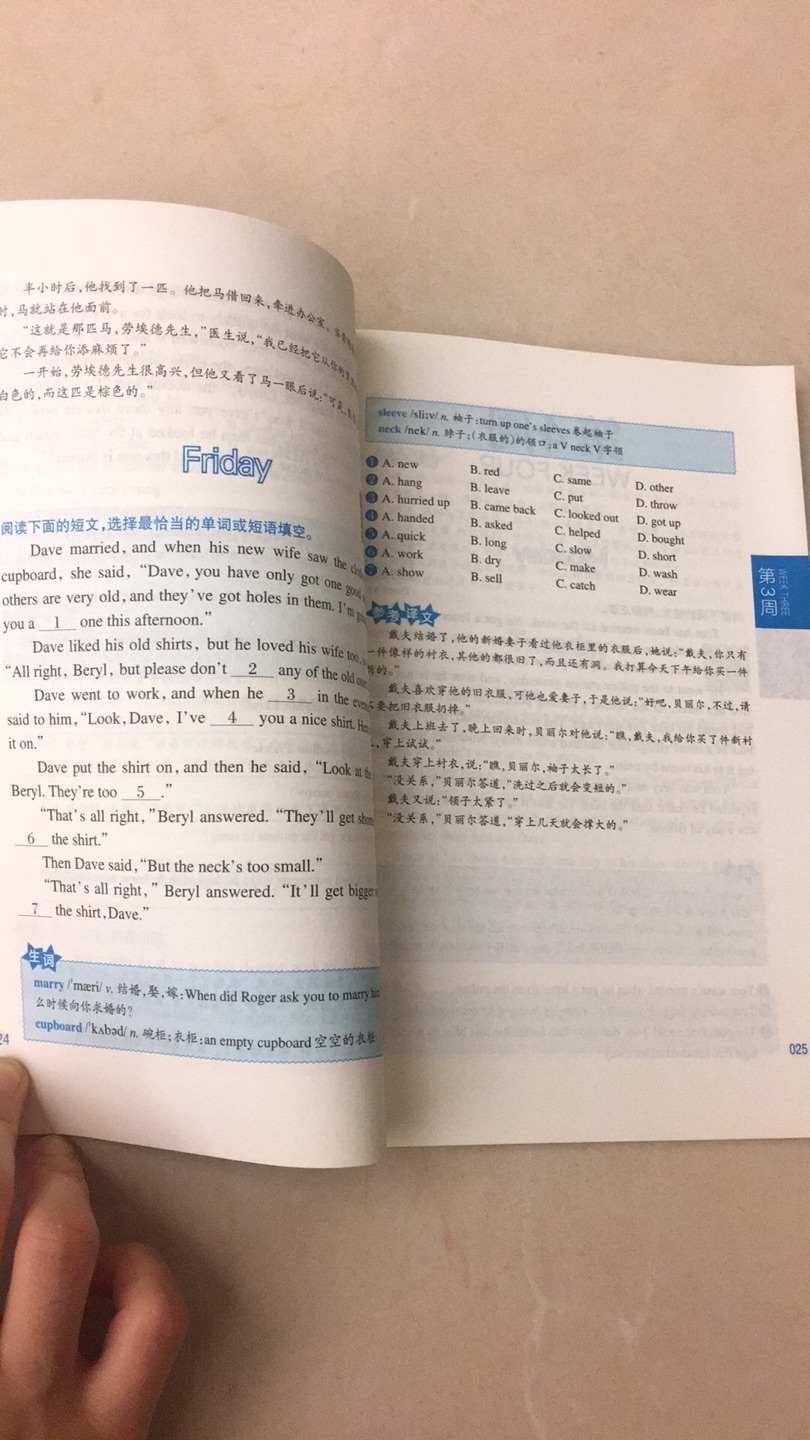 半小时后，他找到了一匹。他把马借回来，牵进办公室。
时，马就站在他面前。
“这就是那匹马，劳埃德先生，”医生说，“我已经把它从你的
它不会再给你添麻烦了。”
一开始，劳埃德先生很高兴，但他又看了马一眼后说：“可是，
白色的，而这匹是棕色的。”
Friday
阅读下面的短文，选择最恰当的单词或短语填空。
Dave married, and when his new wife saw the
cupboard, she said, “Dave, you have only got one good
others are very old, and they’ve got holes in them. I’m
you a 1 one this afternoon.”
Dave liked his old shirts, but he loved his wife too,
“All right, Beryl, but please don’t 2 any of the old
Dave went to work, and when he 3 in the
said to him, “Look, Dave, I’ve 4 you a nice shirt.
it on.”
Dave put the shirt on, and then he said, “Look at
Beryl. They’re too 5 .”
“That’s all right,” Beryl answered. “They’ll get
6 the shirt.”
Then Dave said, “But the neck’s too small.”
“That’s all right,” Beryl answered. “It’ll get bigger
7 the shirt, Dave.”
生词
marry /ˈmæri/ v. 结婚，娶，嫁：When did Roger ask you to marry
么时候向你求婚的？
cupboard /ˈkʌbəd/ n. 碗柜；衣柜：an empty cupboard 空空的衣柜
24
sleeve /sliːv/ n. 袖子：turn up one’s sleeves 卷起袖子
neck /nek/ n. 脖子；（衣服的）的领口：a V neck V字领
1 A. new B. red C. same D. other
2 A. hang B. leave C. put D. throw
3 A. hurried up B. came back C. looked out D. got up
4 A. handed B. asked C. helped D. bought
5 A. quick B. long C. slow D. short
6 A. work B. dry C. make D. wash
7 A. show B. sell C. catch D. wear
参考译文
戴夫结婚了，他的新婚妻子看过他衣柜里的衣服后，她说：“戴夫，你只有
一件像样的衬衣，其他的都很旧了，而且还有洞。我打算今天下午给你买一件
新的。”
戴夫喜欢穿他的旧衣服，可他也爱妻子，于是他说：“好吧，贝丽尔，不过，请
不要把旧衣服扔掉。”
戴夫上班去了，晚上回来时，贝丽尔对他说：“瞧，戴夫，我给你买了件新衬
，穿上试试。”
戴夫穿上衬衣，说：“瞧，贝丽尔，袖子太长了。”
“没关系，”贝丽尔答道，“洗过之后就会变短的。”
戴夫又说：“领子太紧了。”
“没关系，”贝丽尔答道，“穿上几天就会撑大的。”
第3周
WEEK THREE
025